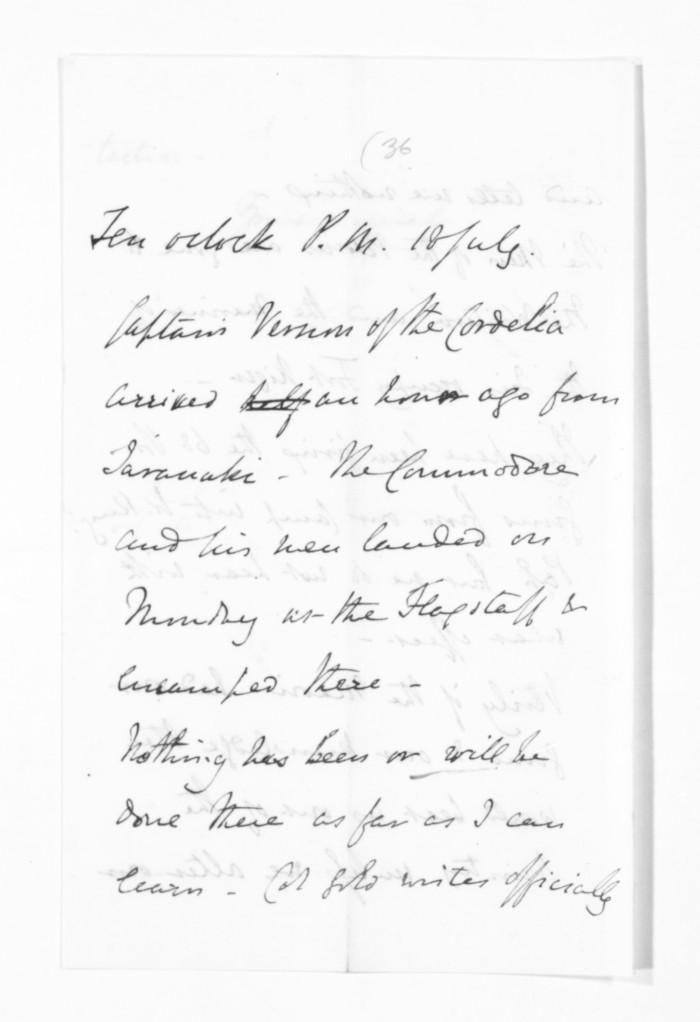 (36
Ten oclock P.M. 18 July.
Captain Vernon of the Cordelia
arrived half an hour ago from
Taranaki - The Commodore
and his men landed on
Monday at the Flagstaff &
encamped there -
Nothing has been or will be
done there as far as I can
learn - Col Gold writes officially